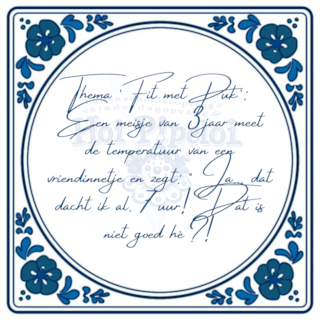 Thema 'Fit met Puk':
Een meisje van 3 jaar meet
de temperatuur van een
vriendinnetje en zegt: "Ja... dat
dacht ik al, 7 uur! Dat is
niet goed hè?!